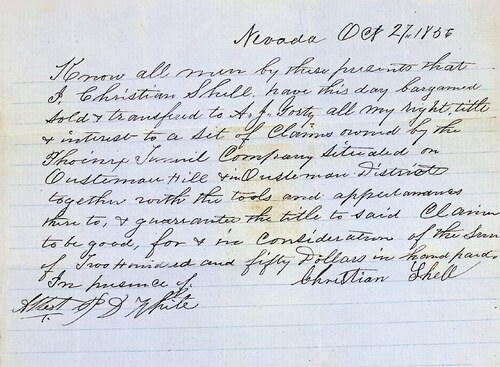 Nevada Oct 27, 1856
Know all men by these presents that
I, Christian Shell have this day bargained
sold & transfered to A. J. Forty all my right, title
& interest to a Sit of Claims owned by the
Phoinix Tunnil Company Situated on
Ousteman Hill & in Ousteman District
together with the tools and appertanances
there to, & guarantee the title to said Claim
to be good, for & in Consideration of the Sum
of Two Hundred and fifty Dollars in hand paid.
In presence of Christian Shell
Attest D White